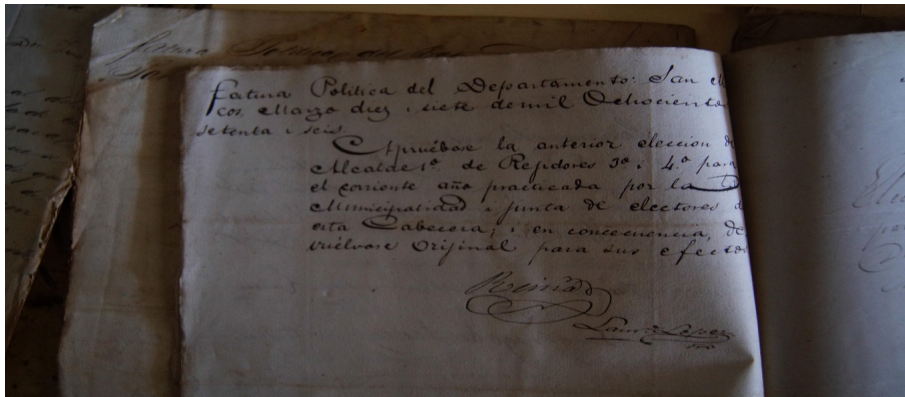 Fatura Politica del Departamento: San M
cos, Marzo diez i siete de mil Ochociento
setenta i seis.
Apruébase la anterior eleccion de
Alcalde 1º de Rejidores 3º i 4.º para
el corriente año practicada por la
Municipalidad i junta de electores d
esta Cabecera; i en concecuencia, de
vuélvase Orijinal para sus efectos
Lopez